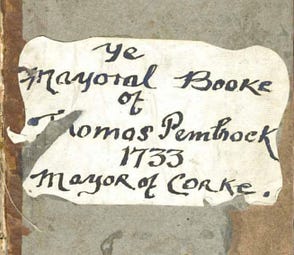 Ye
Mayoral Booke
of
Thomas Pembrock
1733
Mayor of Corke.